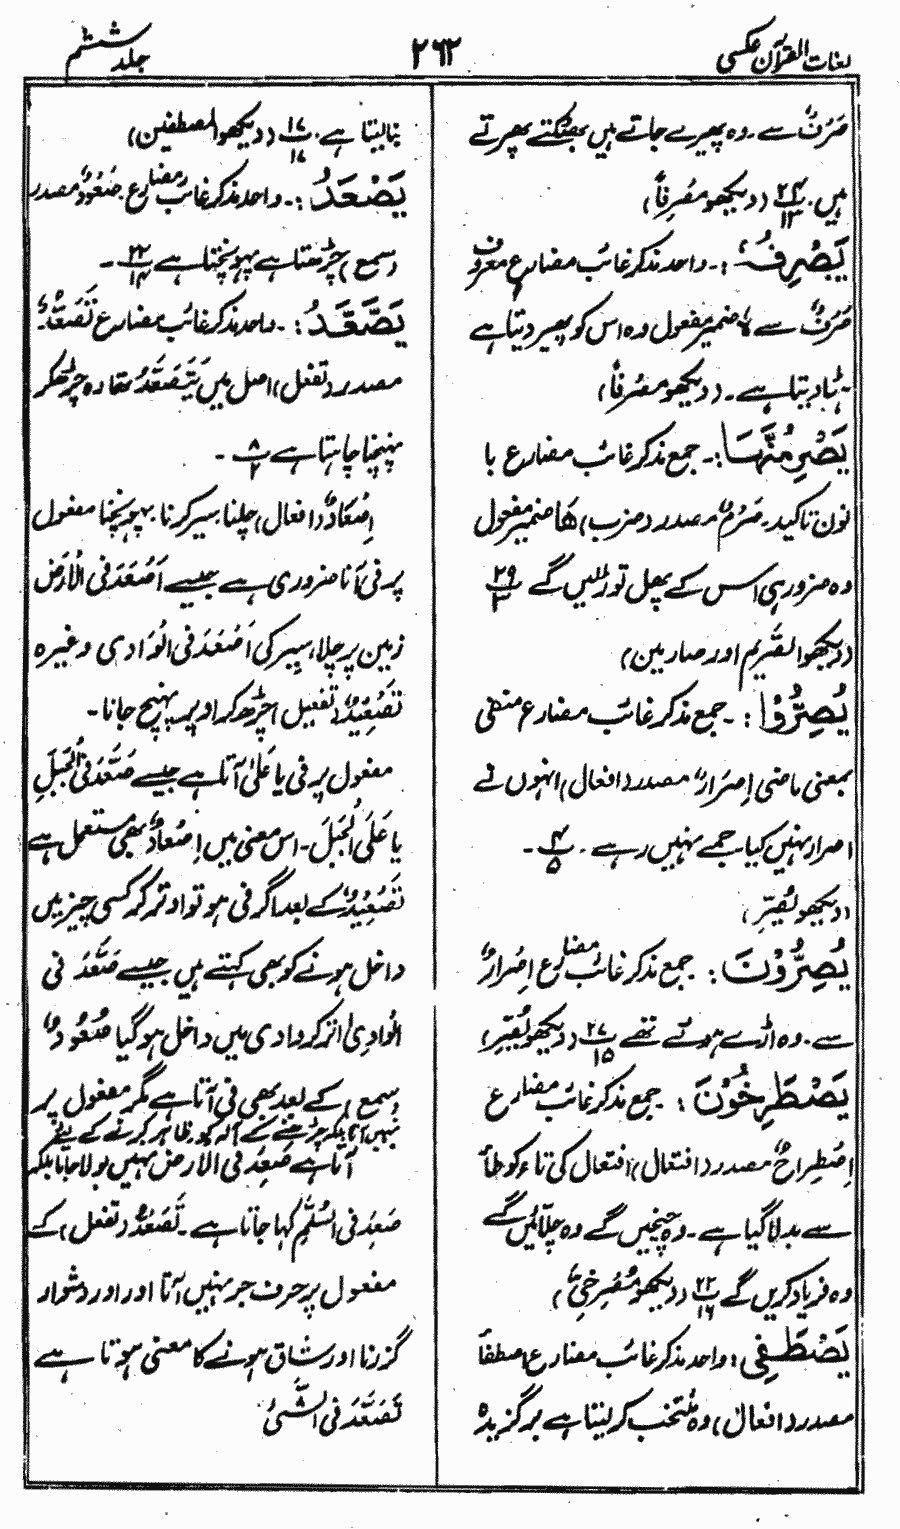 لغات القرآن عکسی
۲۶۲
جلد ششم
صَرْفٌ سے۔ وہ پھیرے جاتے ہیں بھٹکتے پھرتے
ہیں۔ ۲۴/۱۳ (دیکھو مَصْرِفاً)
يَصْرِفُہٗ :۔ واحد مذکر غائب مضارع معروف
صَرْفٌ سے ہٗ ضمیر مفعول وہ اس کو پھیر دیتا ہے
ہٹا دیتا ہے۔ (دیکھو مَصْرِفاً)
يَصْرِمُنَّهَا :۔ جمع مذکر غائب مضارع با
نون تاکید۔ صَرْمٌ مصدر (ضرب) هَا ضمیر مفعول
وہ ضرور ہی اس کے پھل توڑ لیں گے ۲۹/۳
(دیکھو الصَّرِیم اور صارمین)
يُصِرُّوْا :۔ جمع مذکر غائب مضارع منفی
بمعنی ماضی اِصْرَارٌ مصدر (افعال) انہوں نے
اصرار نہیں کیا جمے نہیں رہے۔ ۴/۵
(دیکھو تُصِرّ)
يُصِرُّوْنَ : جمع مذکر غائب مضارع اِصْرَارٌ
سے۔ وہ اڑے ہوئے تھے ۲۷/۱۵ (دیکھو تُصِرّ)
يَصْطَرِخُوْنَ : جمع مذکر غائب مضارع
اِصْطِراخٌ مصدر (افتعال) افتعال کی تاء کو طا
سے بدلا گیا ہے۔ وہ چیخیں گے وہ چلّائیں گے
وہ فریاد کریں گے ۲۲/۱۶ (دیکھو مُصْرِخِیَّ)
يَصْطَفِى : واحد مذکر غائب مضارع اصطفاً
مصدر (افعال) وہ منتخب کر لیتا ہے برگزیدہ
بنا لیتا ہے۔ ۱۷/۱۷ (دیکھو المصطفین)
يَصْعَدُ :۔ واحد مذکر غائب مضارع صُعُوْدٌ مصدر
(سمع) چڑھتا ہے پہونچتا ہے ۲۲/۱۴ ۔
يَصَّعَّدُ :۔ واحد مذکر غائب مضارع تَصَعُّدٌ۔
مصدر (تفعل) اصل میں یَتَصَعَّدُ تھا وہ چڑھ کر
پہنچنا چاہتا ہے ۸/۲ ۔
اِصْعَادٌ (افعال) چلنا۔ سیر کرنا۔ پہونچنا مفعول
پر فی آنا ضروری ہے جیسے اَصْعَدَ فی الْاَرْضِ
زمین پر چلا، سیر کی اَصْعَدَ فی الْوَادی وغیرہ
تَصْعِیْدٌ (تفعیل) چڑھ کر اوپر پہنچ جانا۔
مفعول پر فی یا عَلٰی آتا ہے جیسے صَعَّدَ فی الْجَبَلِ
یا عَلَی الْجَبَلِ۔ اس معنی میں اِصْعَادٌ بھی مستعمل ہے
تَصْعِیْدٌ کے بعد اگر فی ہو تو اوتر کر کسی چیز میں
داخل ہونے کو بھی کہتے ہیں جیسے صَعَّدَ فی
الْوَادِی اتر کر وادی میں داخل ہو گیا صُعُودٌ
(سمع) کے بعد بھی فی آتا ہے مگر مفعول پر
نہیں آتا بلکہ چڑھنے کے آلہ کو ظاہر کرنے کے لیے
آتا ہے صَعِدَ فی الارض نہیں بولا جاتا بلکہ
صَعِدَ فی السُّلَّمِ کہا جاتا ہے۔ تَصَعُّدٌ (تفعل) کے
مفعول پر حرف جر نہیں آتا اور اور دشوار
گزرنا اور شاق ہونے کا معنی ہوتا ہے
تَصَعَّدَ فی الشَّیْءُ